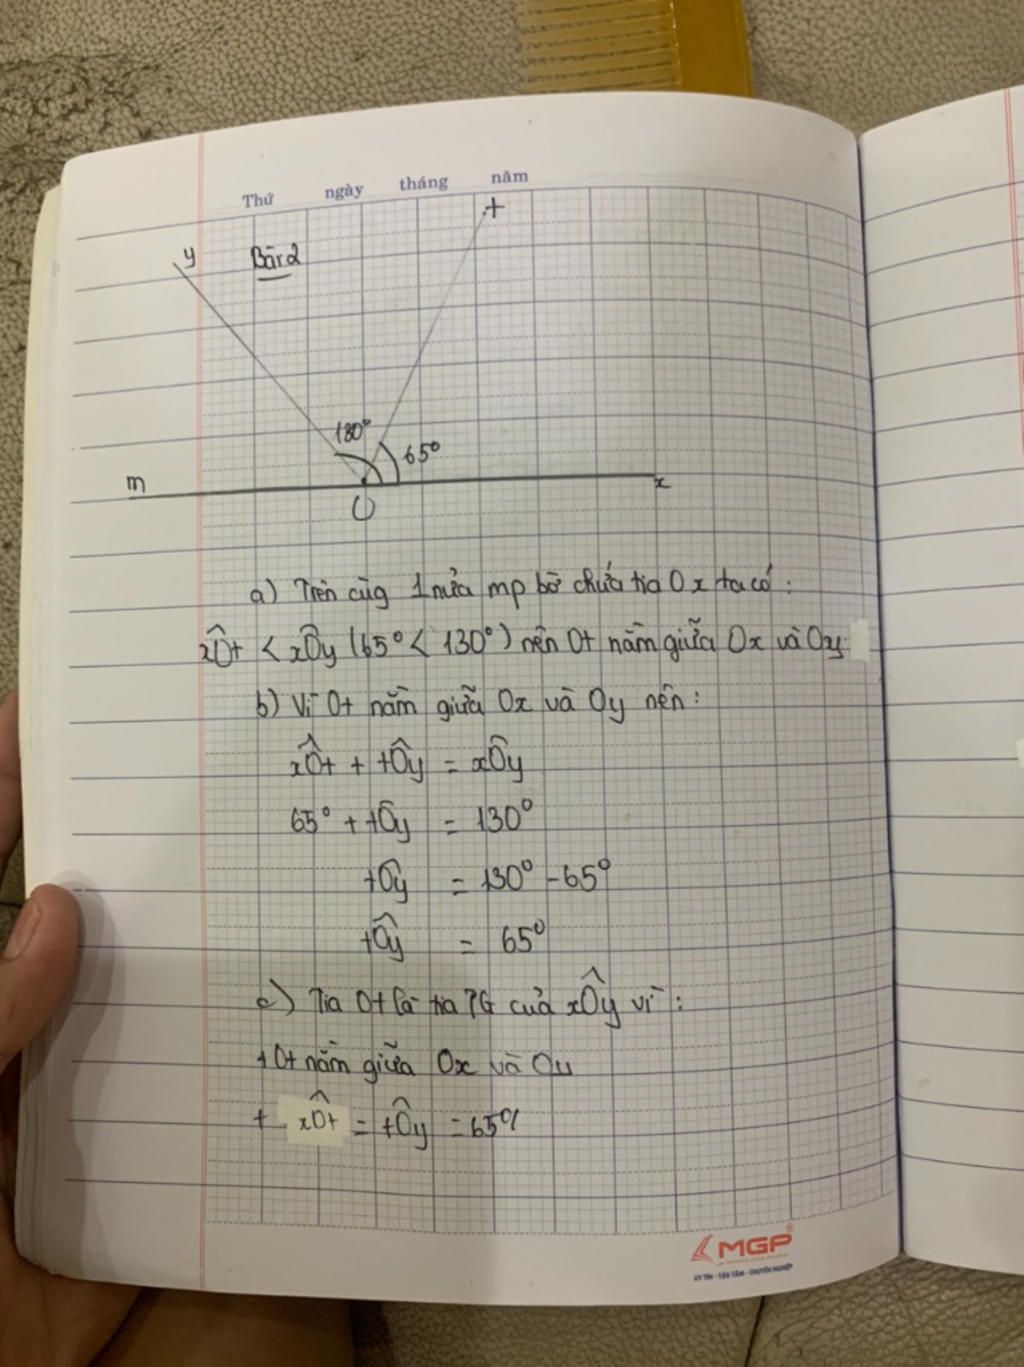 Thứ ngày tháng năm
t
y
Bài 2
130°
65°
m
x
O
a) Trên cùg 1 nửa mp bờ chứa tia Ox ta có:
xÔt < xÔy (65° < 130°) nên Ot nằm giữa Ox và Oy
b) Vì Ot nằm giữa Ox và Oy nên:
xÔt + tÔy = xÔy
65° + tÔy = 130°
tÔy = 130° - 65°
tÔy = 65°
c) Tia Ot là tia PG của xÔy vì:
+ Ot nằm giữa Ox và Oy
+ xÔt = tÔy = 65°
MGP
UY TÍN - TẬN TÂM - CHUYÊN NGHIỆP